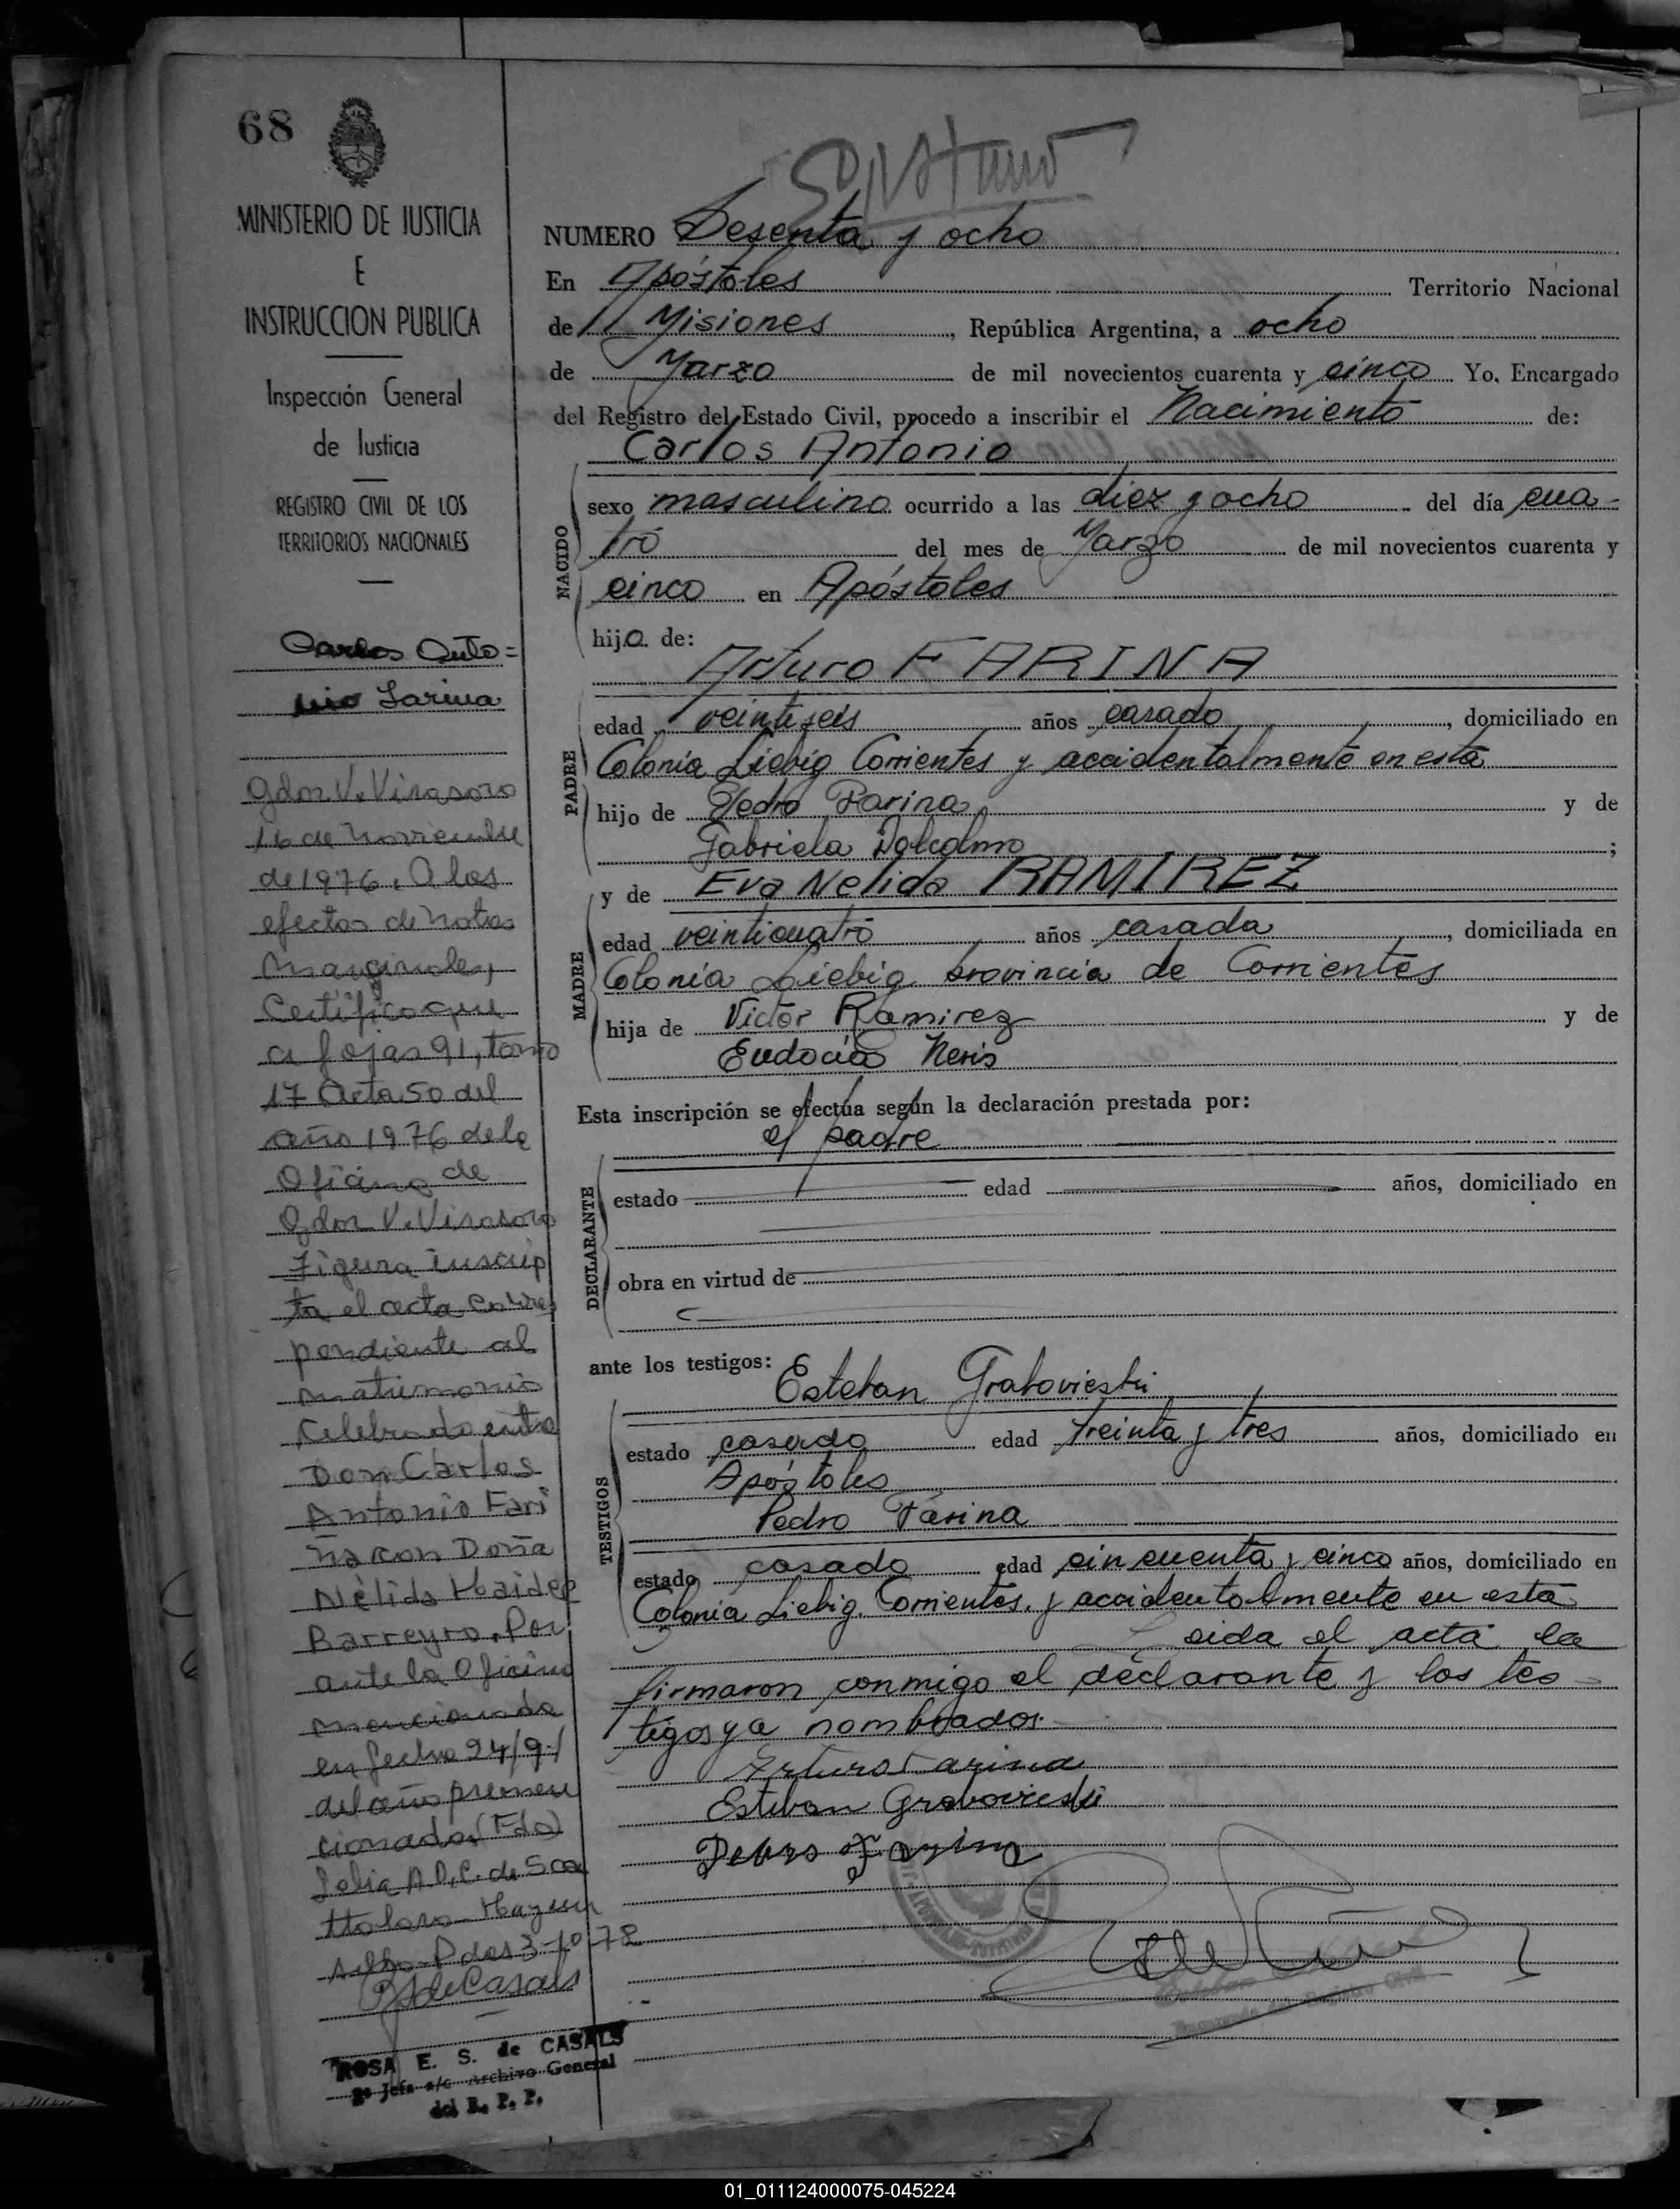 68
MINISTERIO DE JUSTICIA
E
INSTRUCCION PUBLICA
Inspección General
de Justicia
REGISTRO CIVIL DE LOS
TERRITORIOS NACIONALES
Carlos Anto=
nio Farina
Gdor. V. Virasoro
16 de Noviembre
de 1976. A los
efectos de notas
marginales,
Certifico que
a fojas 91, tomo
17 Acta 50 del
año 1976 de la
Oficina de
Gdor V. Virasoro
Figura inscrip
ta el acta corres
pondiente al
matrimonio
Celebrado entre
Don Carlos
Antonio Fari
ña con Doña
Nélida Haidee
Barreyro. Por
ante la Oficina
mencionada
en fecha 24/9/
del año premen
cionado. (Fdo)
A. D. C. de
3-10-78
ROSA E. S. de CASALS
2ª Jefe a/c Archivo General
del R. P. P.
NUMERO Sesenta y ocho
En Apóstoles Territorio Nacional
de Misiones, República Argentina, a ocho
de Marzo de mil novecientos cuarenta y cinco Yo, Encargado
del Registro del Estado Civil, procedo a inscribir el Nacimiento de:
Carlos Antonio
NACIDO
sexo masculino ocurrido a las diez y ocho del día cua=
tro del mes de Marzo de mil novecientos cuarenta y
cinco en Apóstoles
hijo de:
Arturo FARINA
PADRE
edad veintiseis años casado, domiciliado en
Colonia Liebig Corrientes y accidentalmente en esta
hijo de Pedro Farina y de
Gabriela ;
y de Eva Nelida RAMIREZ
MADRE
edad veinticuatro años casada, domiciliada en
Colonia Liebig provincia de Corrientes
hija de Victor Ramirez y de
Eudocia Neris
Esta inscripción se efectúa según la declaración prestada por:
el padre
DECLARANTE
estado edad años, domiciliado en
obra en virtud de
ante los testigos: Esteban Grabovieski
TESTIGOS
estado casado edad treinta y tres años, domiciliado en
Apóstoles
Pedro Farina
estado casado edad cincuenta y cinco años, domiciliado en
Colonia Liebig. Corrientes. y accidentalmente en esta
Leida el acta la
firmaron conmigo el declarante y los tes=
tigos ya nombrados.
Arturo Farina
Esteban Grabovieski
Pedro Farina
01_011124000075-045224